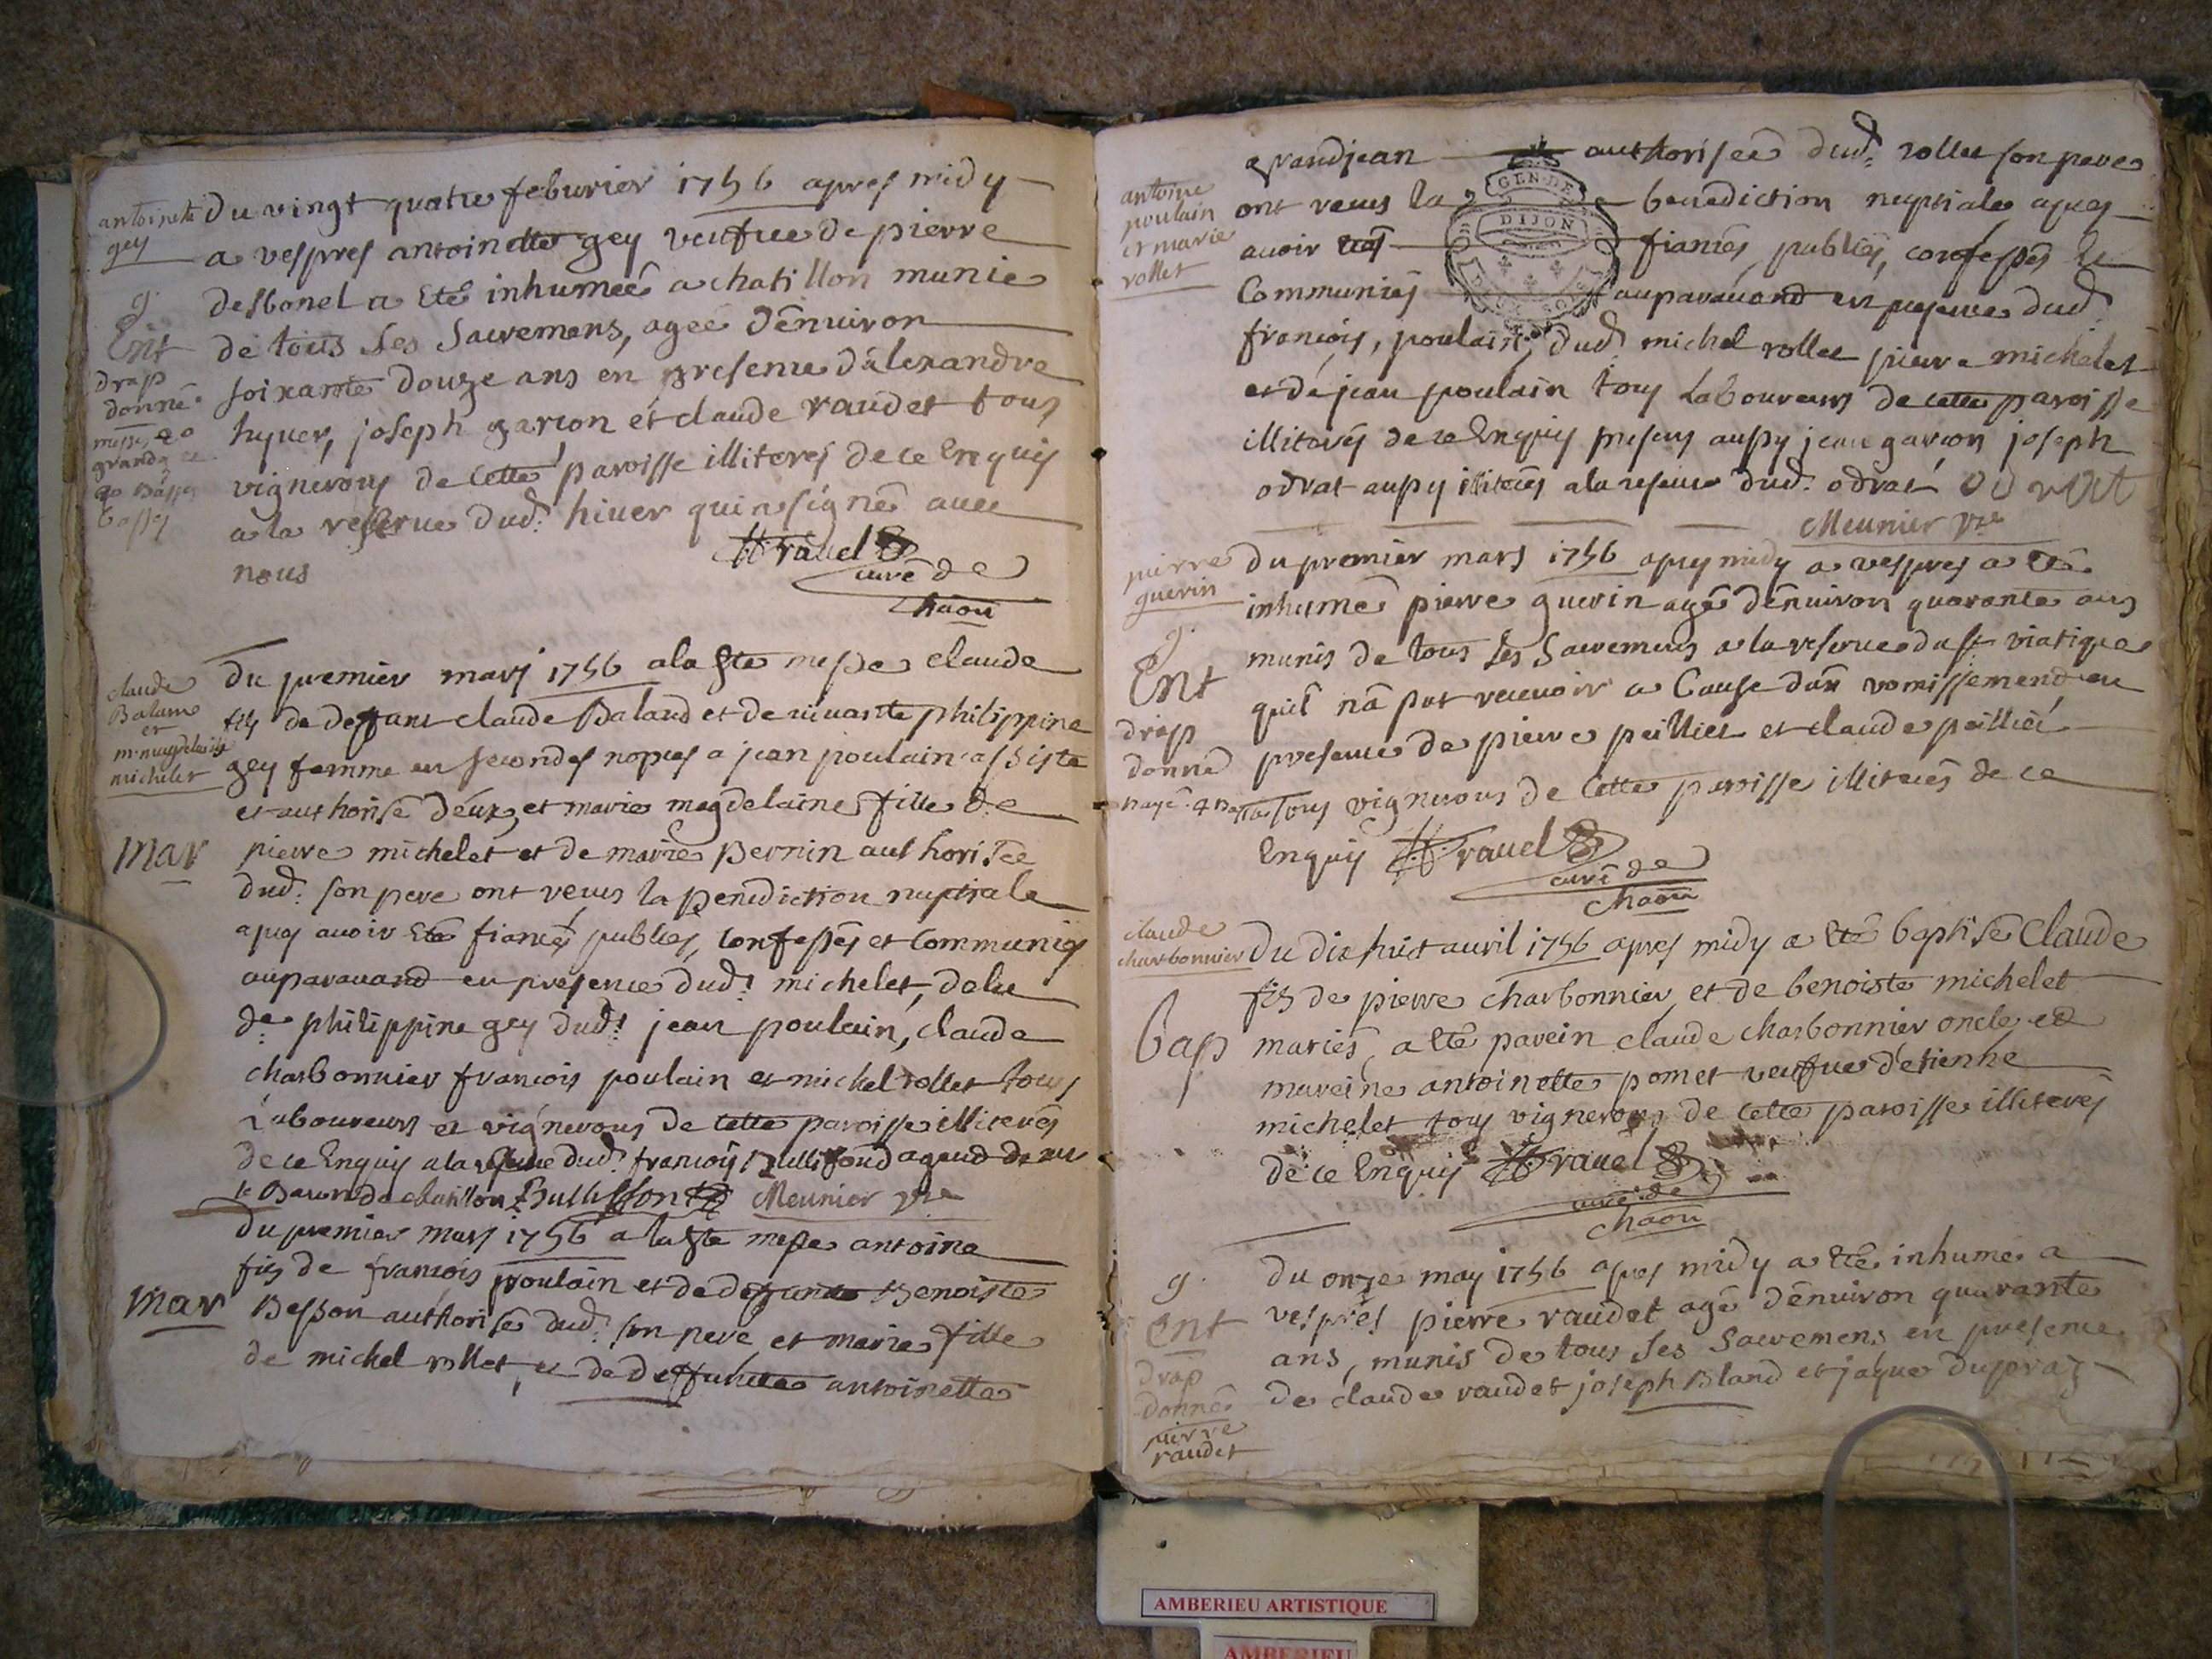 antoinete
gey
g.
Ent
drap
donné
du vingt quatre feburier 1756 apres midy
a vespres antoinette gey veufue de pierre
desbonel a eté inhumeé a chatillon munie
de tous ses Sacremens, ageé dénuiron
soixante douze ans en presence dálexandre
hyuer, joseph garcon ét claude raudet tous
vignerons de cette paroisse illiterés de ce enquis
a la reserue dud. hiuer qui n signé auec
nous
Rauel
curé de
chaou
claude
Balam
et
m. magdelaine
michelet
mar
du premier mars 1756 a la ste messe claude
fils de deffunt claude Baland et de viuante philippine
gey femme en secondes nopces a jean poulain assisté
et authorisé déux, et marie magdelaine fille de
pierre michelet et de marie Pernin authoriseé
dud. son pere ont receus la Benediction nuptiale
apres auoir eté fiancés publies, confessés et Communiés
auparauand en presence dud. michelet, de lad
de philippine gey dud. jean poulain, claude
charbonnier francois poulain et michel rollet tous
laboureurs et vignerons de cette paroisse illiterés
de ce enquis a la reserue dud. francois Bullifond agend de mr
le Baron de chatillon Bulliffon Meunier ptre
mar
du premier mars 1756 a la ste messe antoine
fils de francois poulain et de deffunte Benoiste
Besson authorisé dud. son pere et marie fille
de michel rollet, et de deffuncte antoinette
antoine
poulain
et marie
rollet
grandjean authoriseé dud. rollet son pere
ont receus la benediction nuptiale apres
auoir etes fiancés, publiés, confessés et
Communiés auparauand en presence dud.
francois, poulain, dud. michel rollet pierre michelet
et dé jean poulain tous Laboureurs de cette paroisse
illiterés de ce enquis presens aussy jean garcon joseph
odrat aussy illiterés a la reserue dud. odrat odrat
Meunier ptre
GEN. DE
DIJON
pierre
guerin
g.
Ent
drap
donné
du premier mars 1756 apres midy a vespres a eté
inhumé pierre guerin agé dénuiron quarante ans
munis de tous ses Sacremens a la reserue du st viatique
quil ná put receuoir a Cause dún vomissement en
presence de pierre peilliet et claude peilliet
tous vignerons de cette paroisse illiterés de ce
enquis Rauel
curé de
chaou
claude
charbonnier
bap
du dix huit auril 1756 apres midy a eté baptisé Claude
fils de pierre charbonnier et de benoiste michelet
mariés a eté parein claude charbonnier oncle et
mareine antoinette pomet veufue détienne
michelet tous vignerons de cette paroisse illiterés
de ce enquis Rauel
curé de
chaou
g.
ent
drap
donné
pierre
raudet
du onze may 1756 apres midy a eté inhumé a
vespres pierre raudet agé dénuiron quarante
ans, munis de tous ses Sacremens en presence
de claude raudet joseph Bland et jaque dupraz
AMBERIEU ARTISTIQUE
AMBERIEU